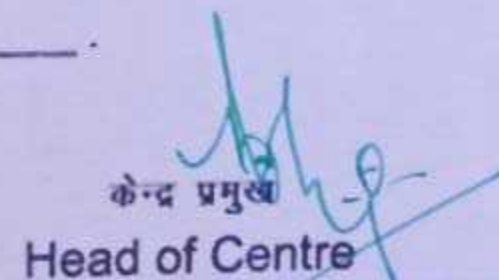 केन्द्र प्रमुख
Head of Centre